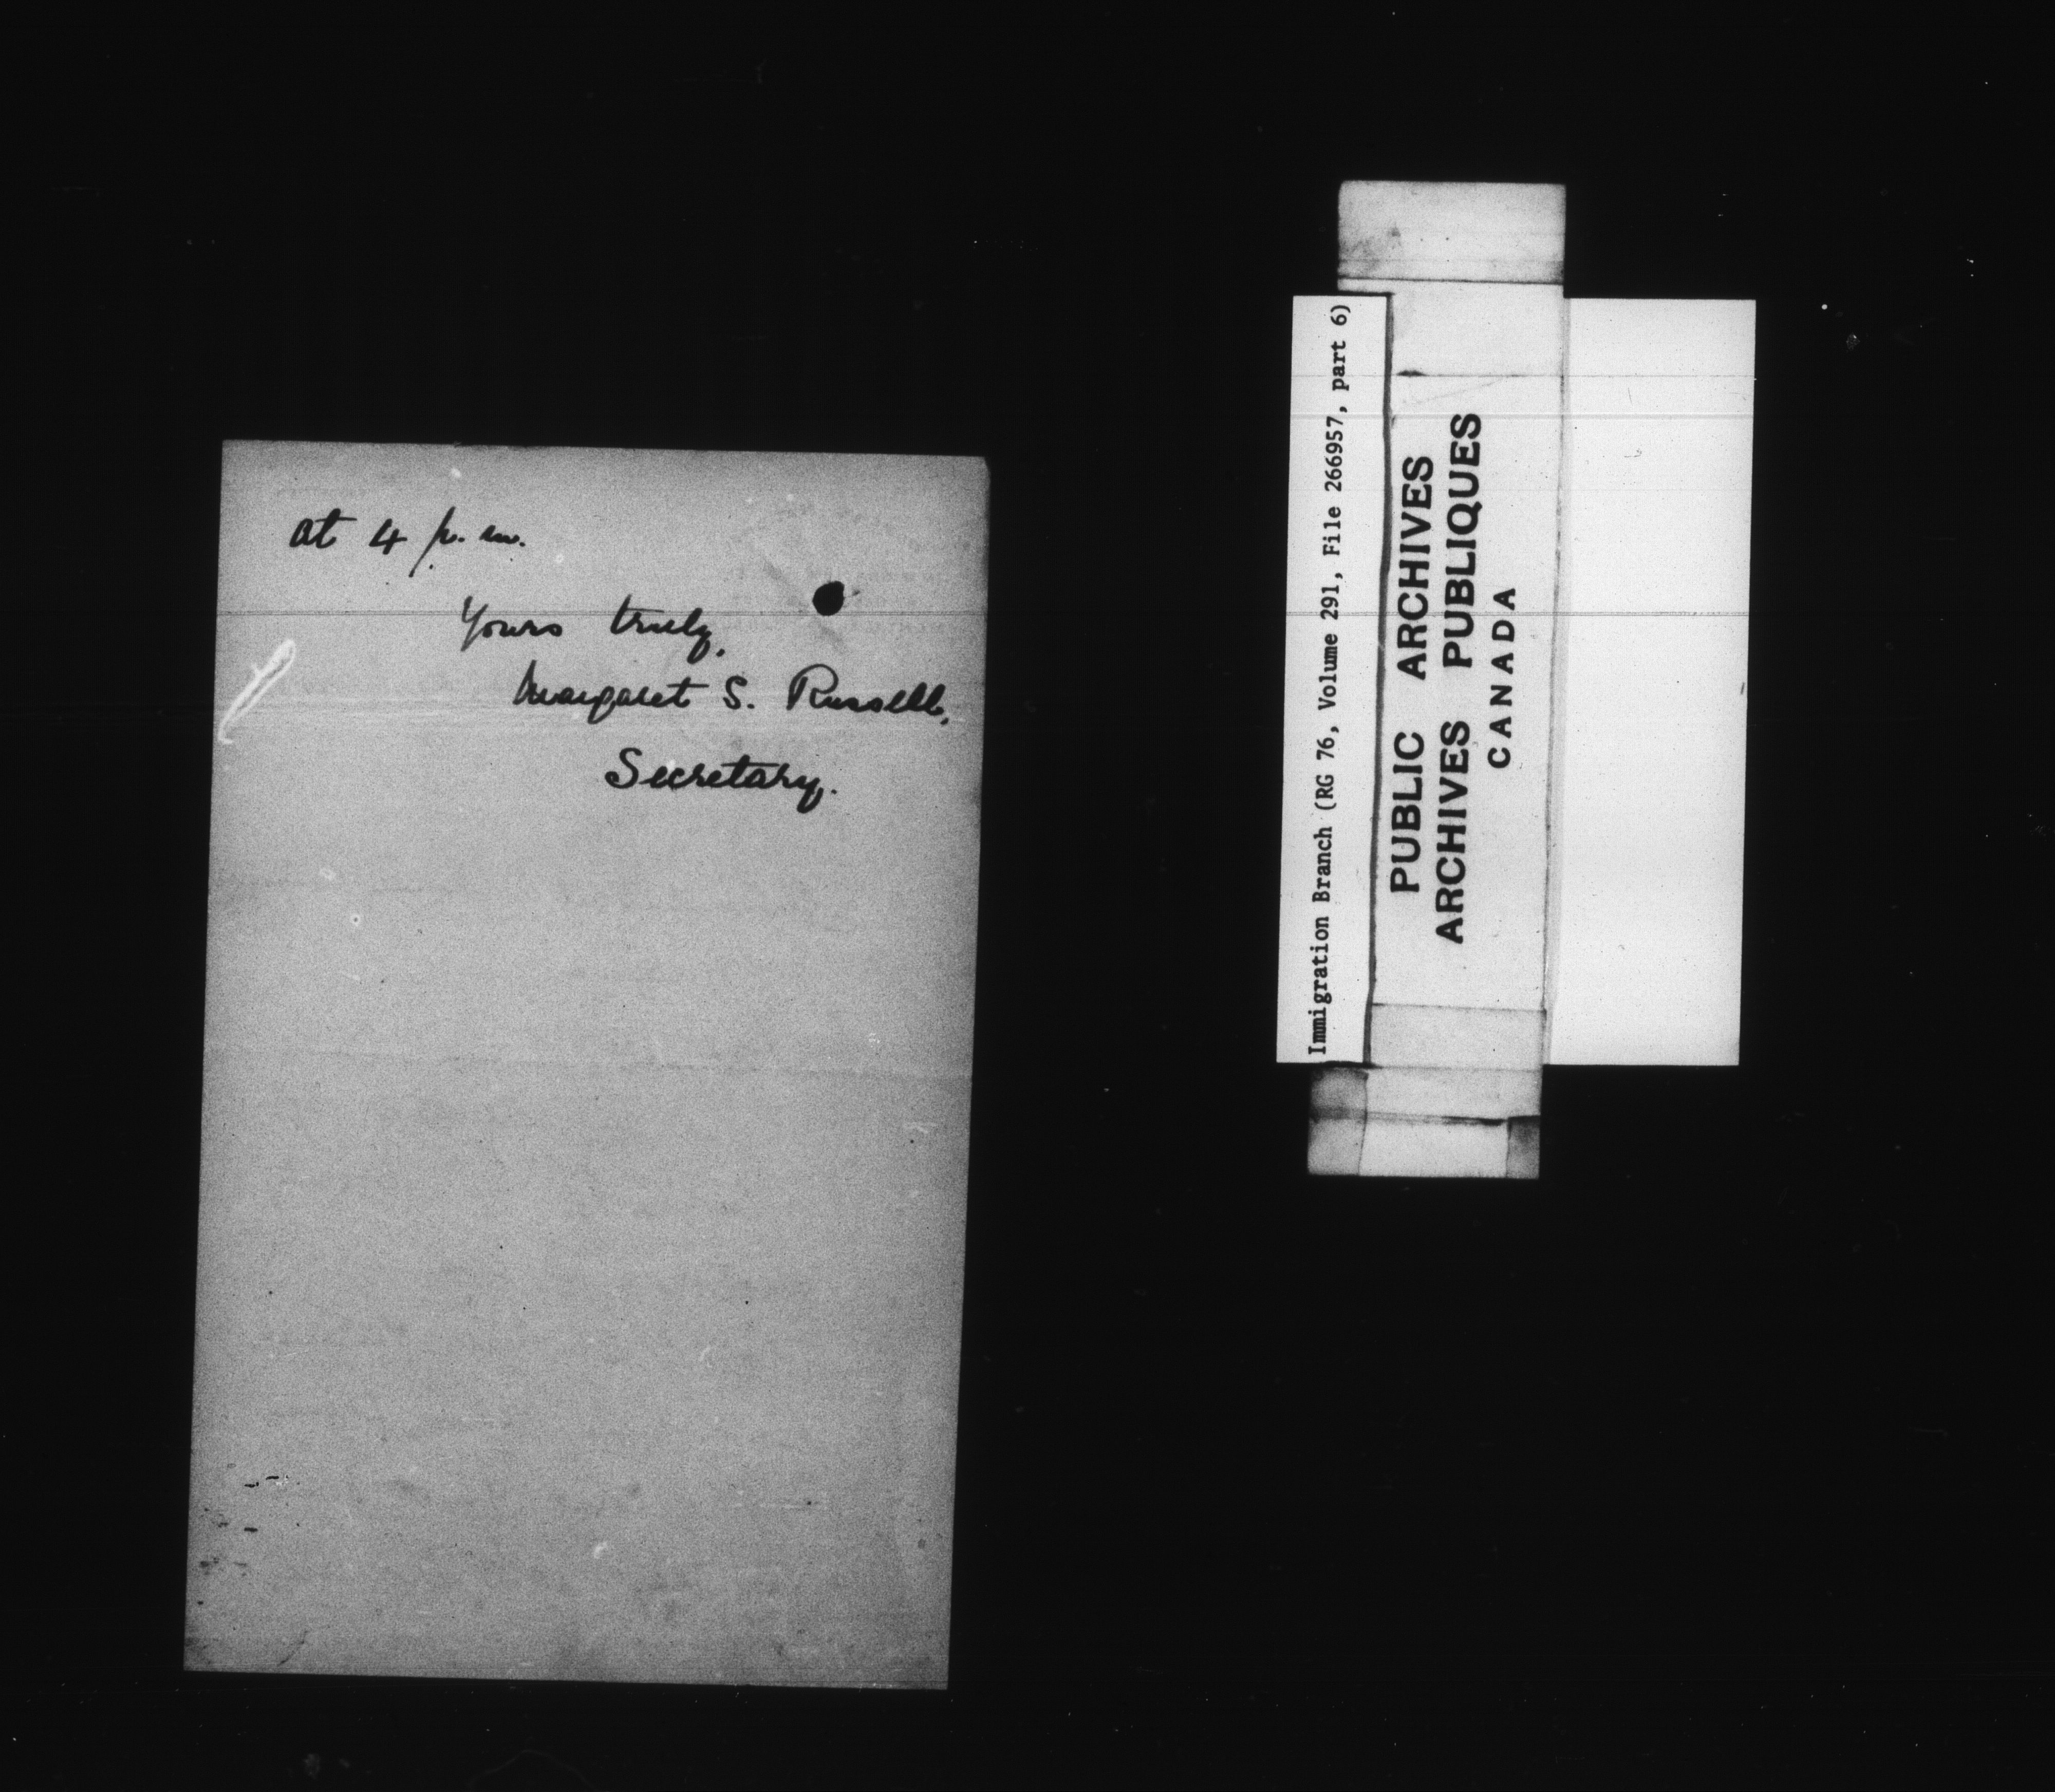 at 4 p.m.
Yours truly,
Margaret S. Russell,
Secretary.
Immigration Branch (RG 76, Volume 291, File 266957, part 6)
PUBLIC ARCHIVES
ARCHIVES PUBLIQUES
CANADA